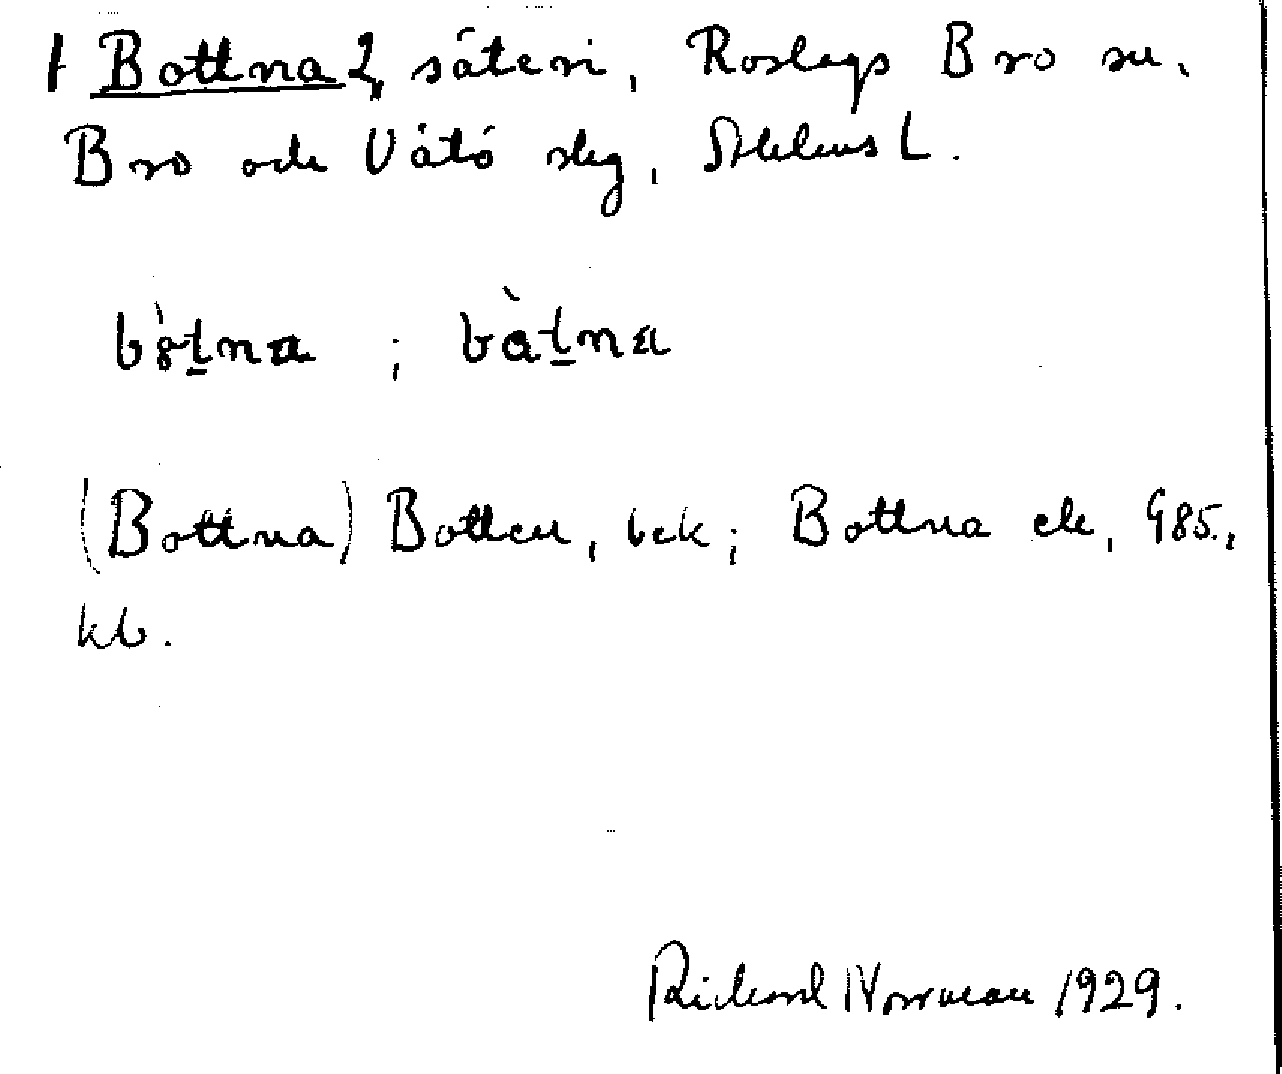 Bottna 2, säteri, Roslags Bro sn,
Bro och Vätö slg, Sthlms L.
bòtna ; bàtna
(Bottna) Botten, bek; Bottna ek, G85.,
kb.
Rickard Norrman 1929.